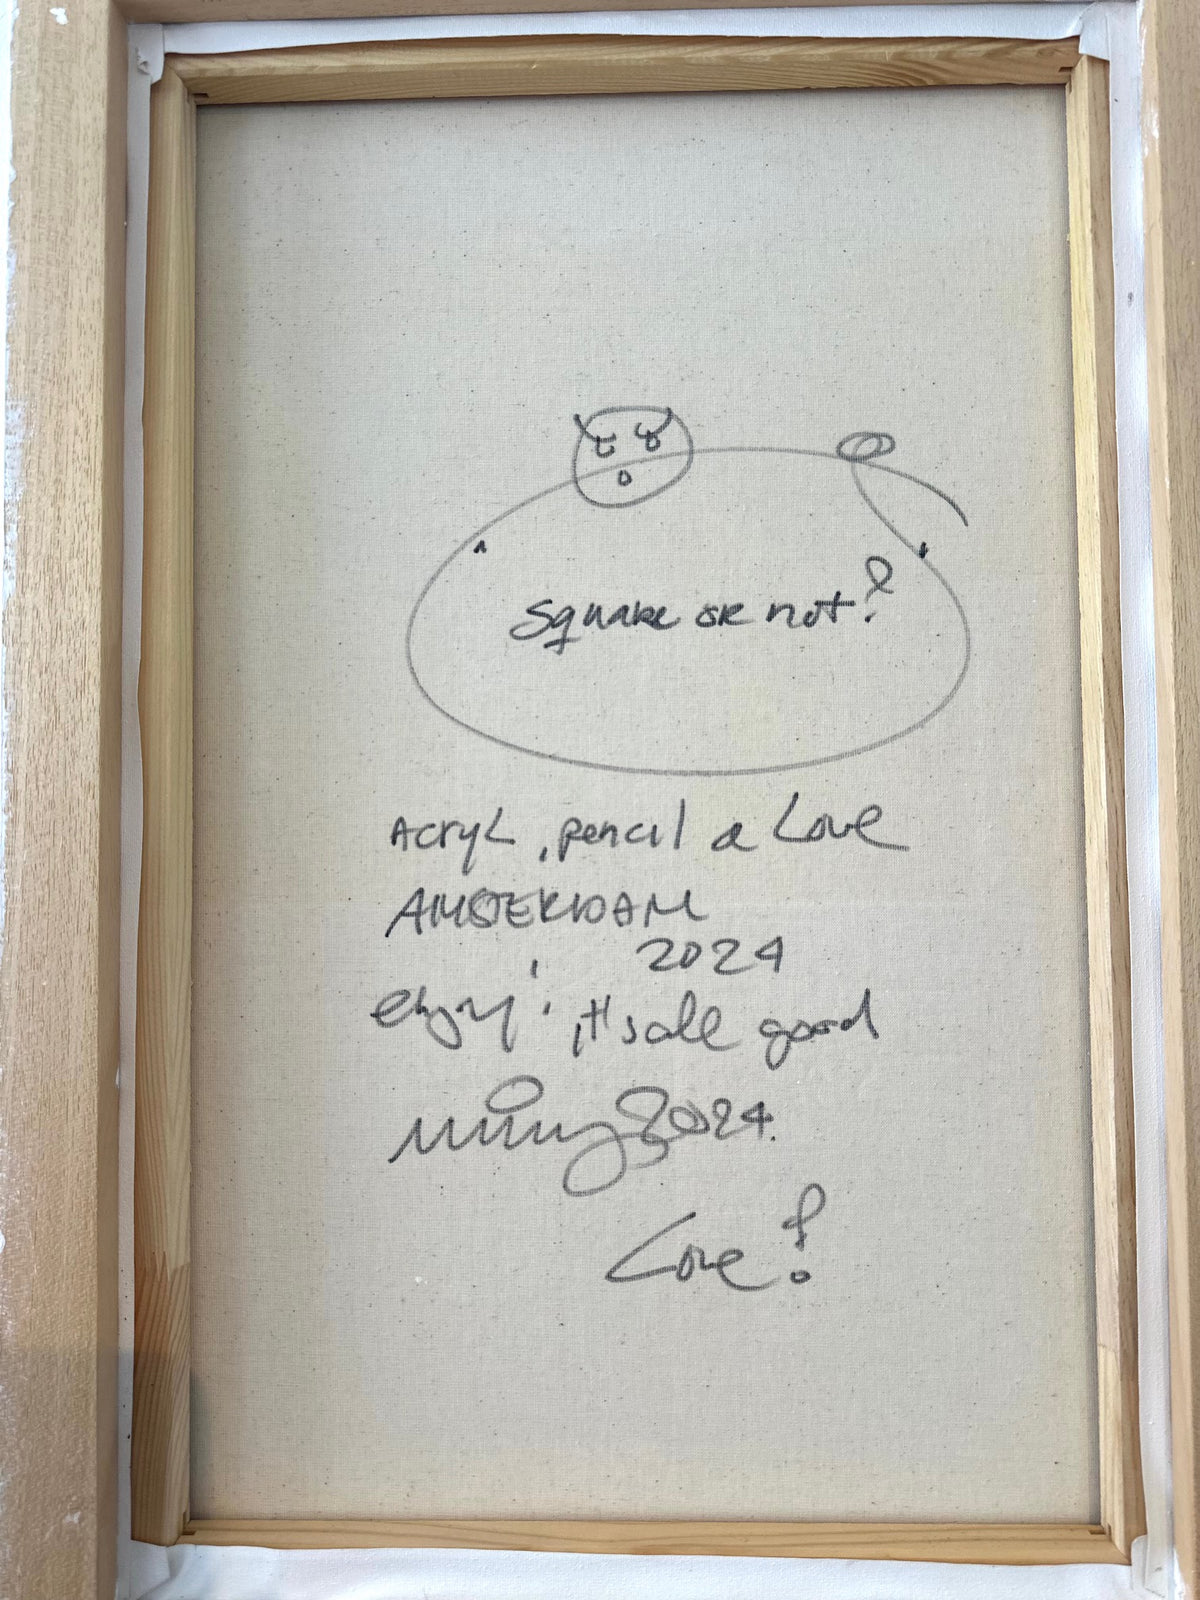 Square or not?
Acryl, pencil a Love
AMSTERDAM
2024
enjoy! it's all good
2024.
Love!